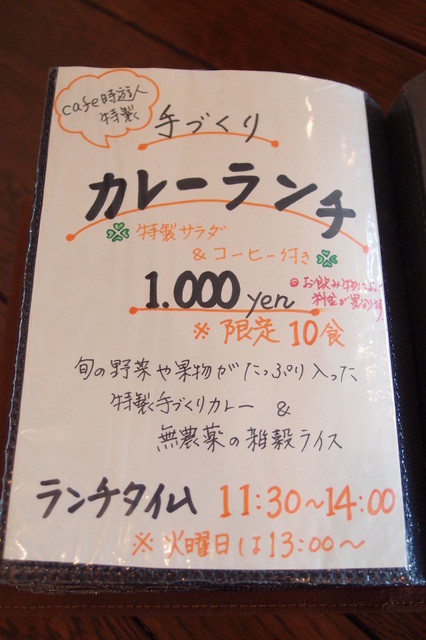 cafe時遊人
特製
手づくり
カレーランチ
特製サラダ
& コーヒー付き
1.000 yen
@ お飲み物によって
料金が異なります
※ 限定 10食
旬の野菜や果物がたっぷり入った
特製手づくりカレー &
無農薬の雑穀ライス
ランチタイム 11:30～14:00
※ 火曜日は13:00～